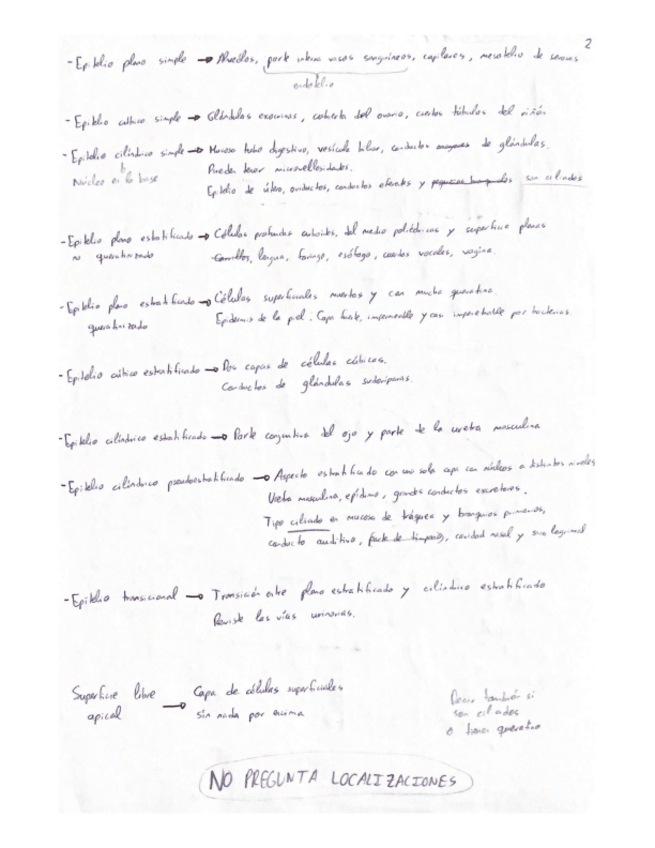 2
- Epitelio plano simple → Alveólos, parte interna vasos sanguíneos, capilares, mesotelio de serosas
endotelio
- Epitelio cúbico simple → Glándulas exocrinas, cubierta del ovario, ciertos túbulos del riñón
- Epitelio cilíndrico simple → Mucosa tubo digestivo, vesícula biliar, conductos mayores de glándulas.
Núcleo en la base
Pueden tener microvellosidades.
Epitelio de útero, oviductos, conductos eferentes y pequeños bronquios son ciliados
- Epitelio plano estratificado → Células profundas cuboides, del medio poliédricas y superficie planas
no queratinizado
Carrillos, lengua, faringe, esófago, cuerdas vocales, vagina.
- Epitelio plano estratificado → Células superficiales muertas y con mucha queratina.
queratinizado
Epidermis de la piel. Capa fuerte, impermeable y casi impenetrable por bacterias.
- Epitelio cúbico estratificado → Dos capas de células cúbicas.
Conductos de glándulas sudoríparas.
- Epitelio cilíndrico estratificado → Parte conjuntiva del ojo y parte de la uretra masculina
- Epitelio cilíndrico pseudoestratificado → Aspecto estratificado con una sola capa con núcleos a distintos niveles
Uretra masculina, epídimo, grandes conductos excretores.
Tipo ciliado en mucosa de tráquea y bronquios primarios,
conducto auditivo, parte de tímpano, cavidad nasal y saco lagrimal
- Epitelio transicional → Transición entre plano estratificado y cilíndrico estratificado
Reviste las vías urinarias.
Superficie libre → Capa de células superficiales
apical
sin nada por encima
Decir también si
son ciliados
o tienen queratina
NO PREGUNTA LOCALIZACIONES